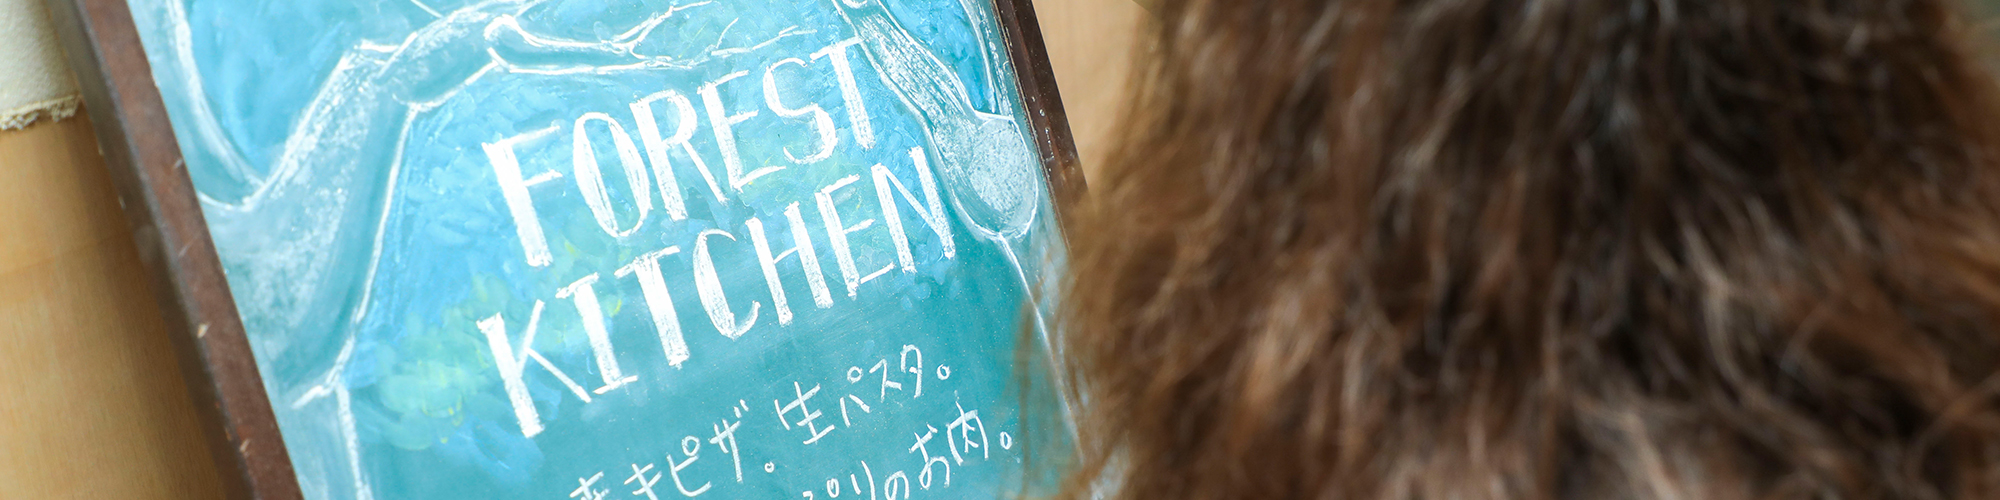 FOREST
KITCHEN
きピザ。生パスタ。
りのお肉。